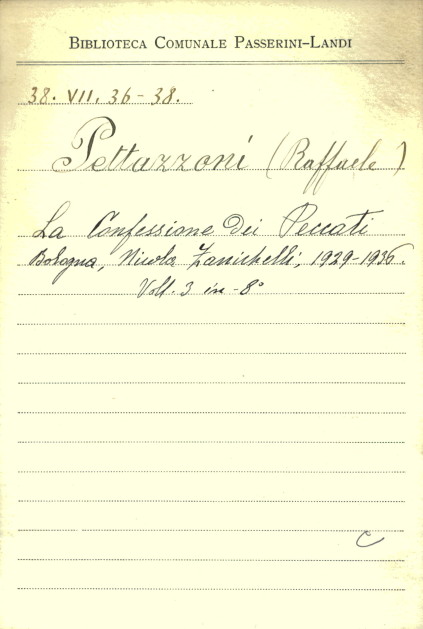 BIBLIOTECA COMUNALE PASSERINI-LANDI
38. VII. 36-38.
Pettazzoni (Raffaele)
La Confessione dei Peccati
Bologna, Nicola Zanichelli, 1929-1936.
Voll. 3 in-8°
C